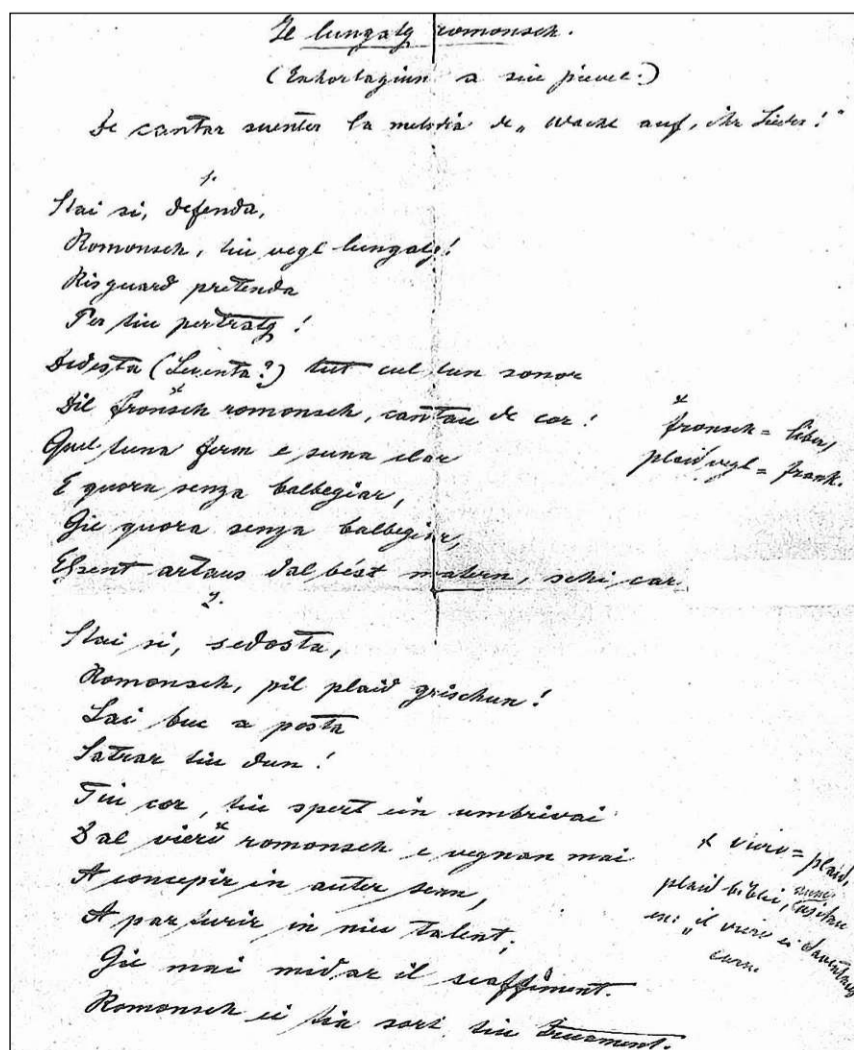 Il lungatg romonsch.
(Exhortaziun a siu pievel.)
De cantar suenter la melodia de „Wache auf, ihr Lieder!"
1.
Stai si, defenda,
Romonsch, tiu vegl lungatg!
Risguard pretenda
Per tiu pertratg!
Dedesta (Leventa?) tut cul tun sonor
Dil fronsch romonsch, cantau de cor!
Quel tuna ferm e suna clar
E quora senza balbegiar,
Gie quora senza balbegiar,
Essent artaus dal best matern, schi car.
x fronsch = liber,
plaid vegl = frank.
2.
Stai si, sedosta,
Romonsch, pil plaid grischun!
Lai buc a posta
Satrar tiu dun!
Tiu cor, tiu spert ein umbrivai
Dal vierv romonsch e vegnan mai
A concepir in auter senn,
A parturir in niev talent;
Gie mai midar il scaffiment.
Romonsch ei tia sort, tiu
x vierv = plaid,
plaid biblic,
en: „il vierv ei daventaus
carn